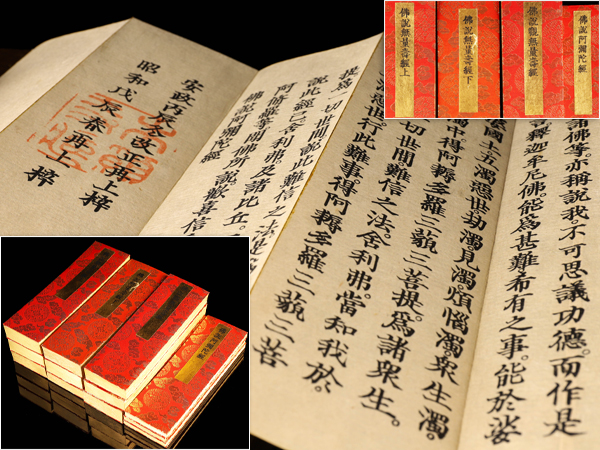 佛說無量壽經上
佛說無量壽經下
佛說觀無量壽經
佛說阿彌陀經
諸佛等。亦稱說我不可思議功德。而作是
釋迦牟尼佛。能爲甚難希有之事。能於娑
國土五濁惡世。劫濁。見濁。煩惱濁。衆生濁。
濁中。得阿耨多羅三藐三菩提。爲諸衆生。
一切世間難信之法。舍利弗。當知我於。
惡世。行此難事。得阿耨多羅三藐三菩
提。爲一切世間。說此難信之法。是
說此經已。舍利弗。及諸比丘。
阿脩羅等。聞佛所說。歡喜信
佛說阿彌陀經
安政丙辰冬改正再上梓
昭和戊辰春再上梓